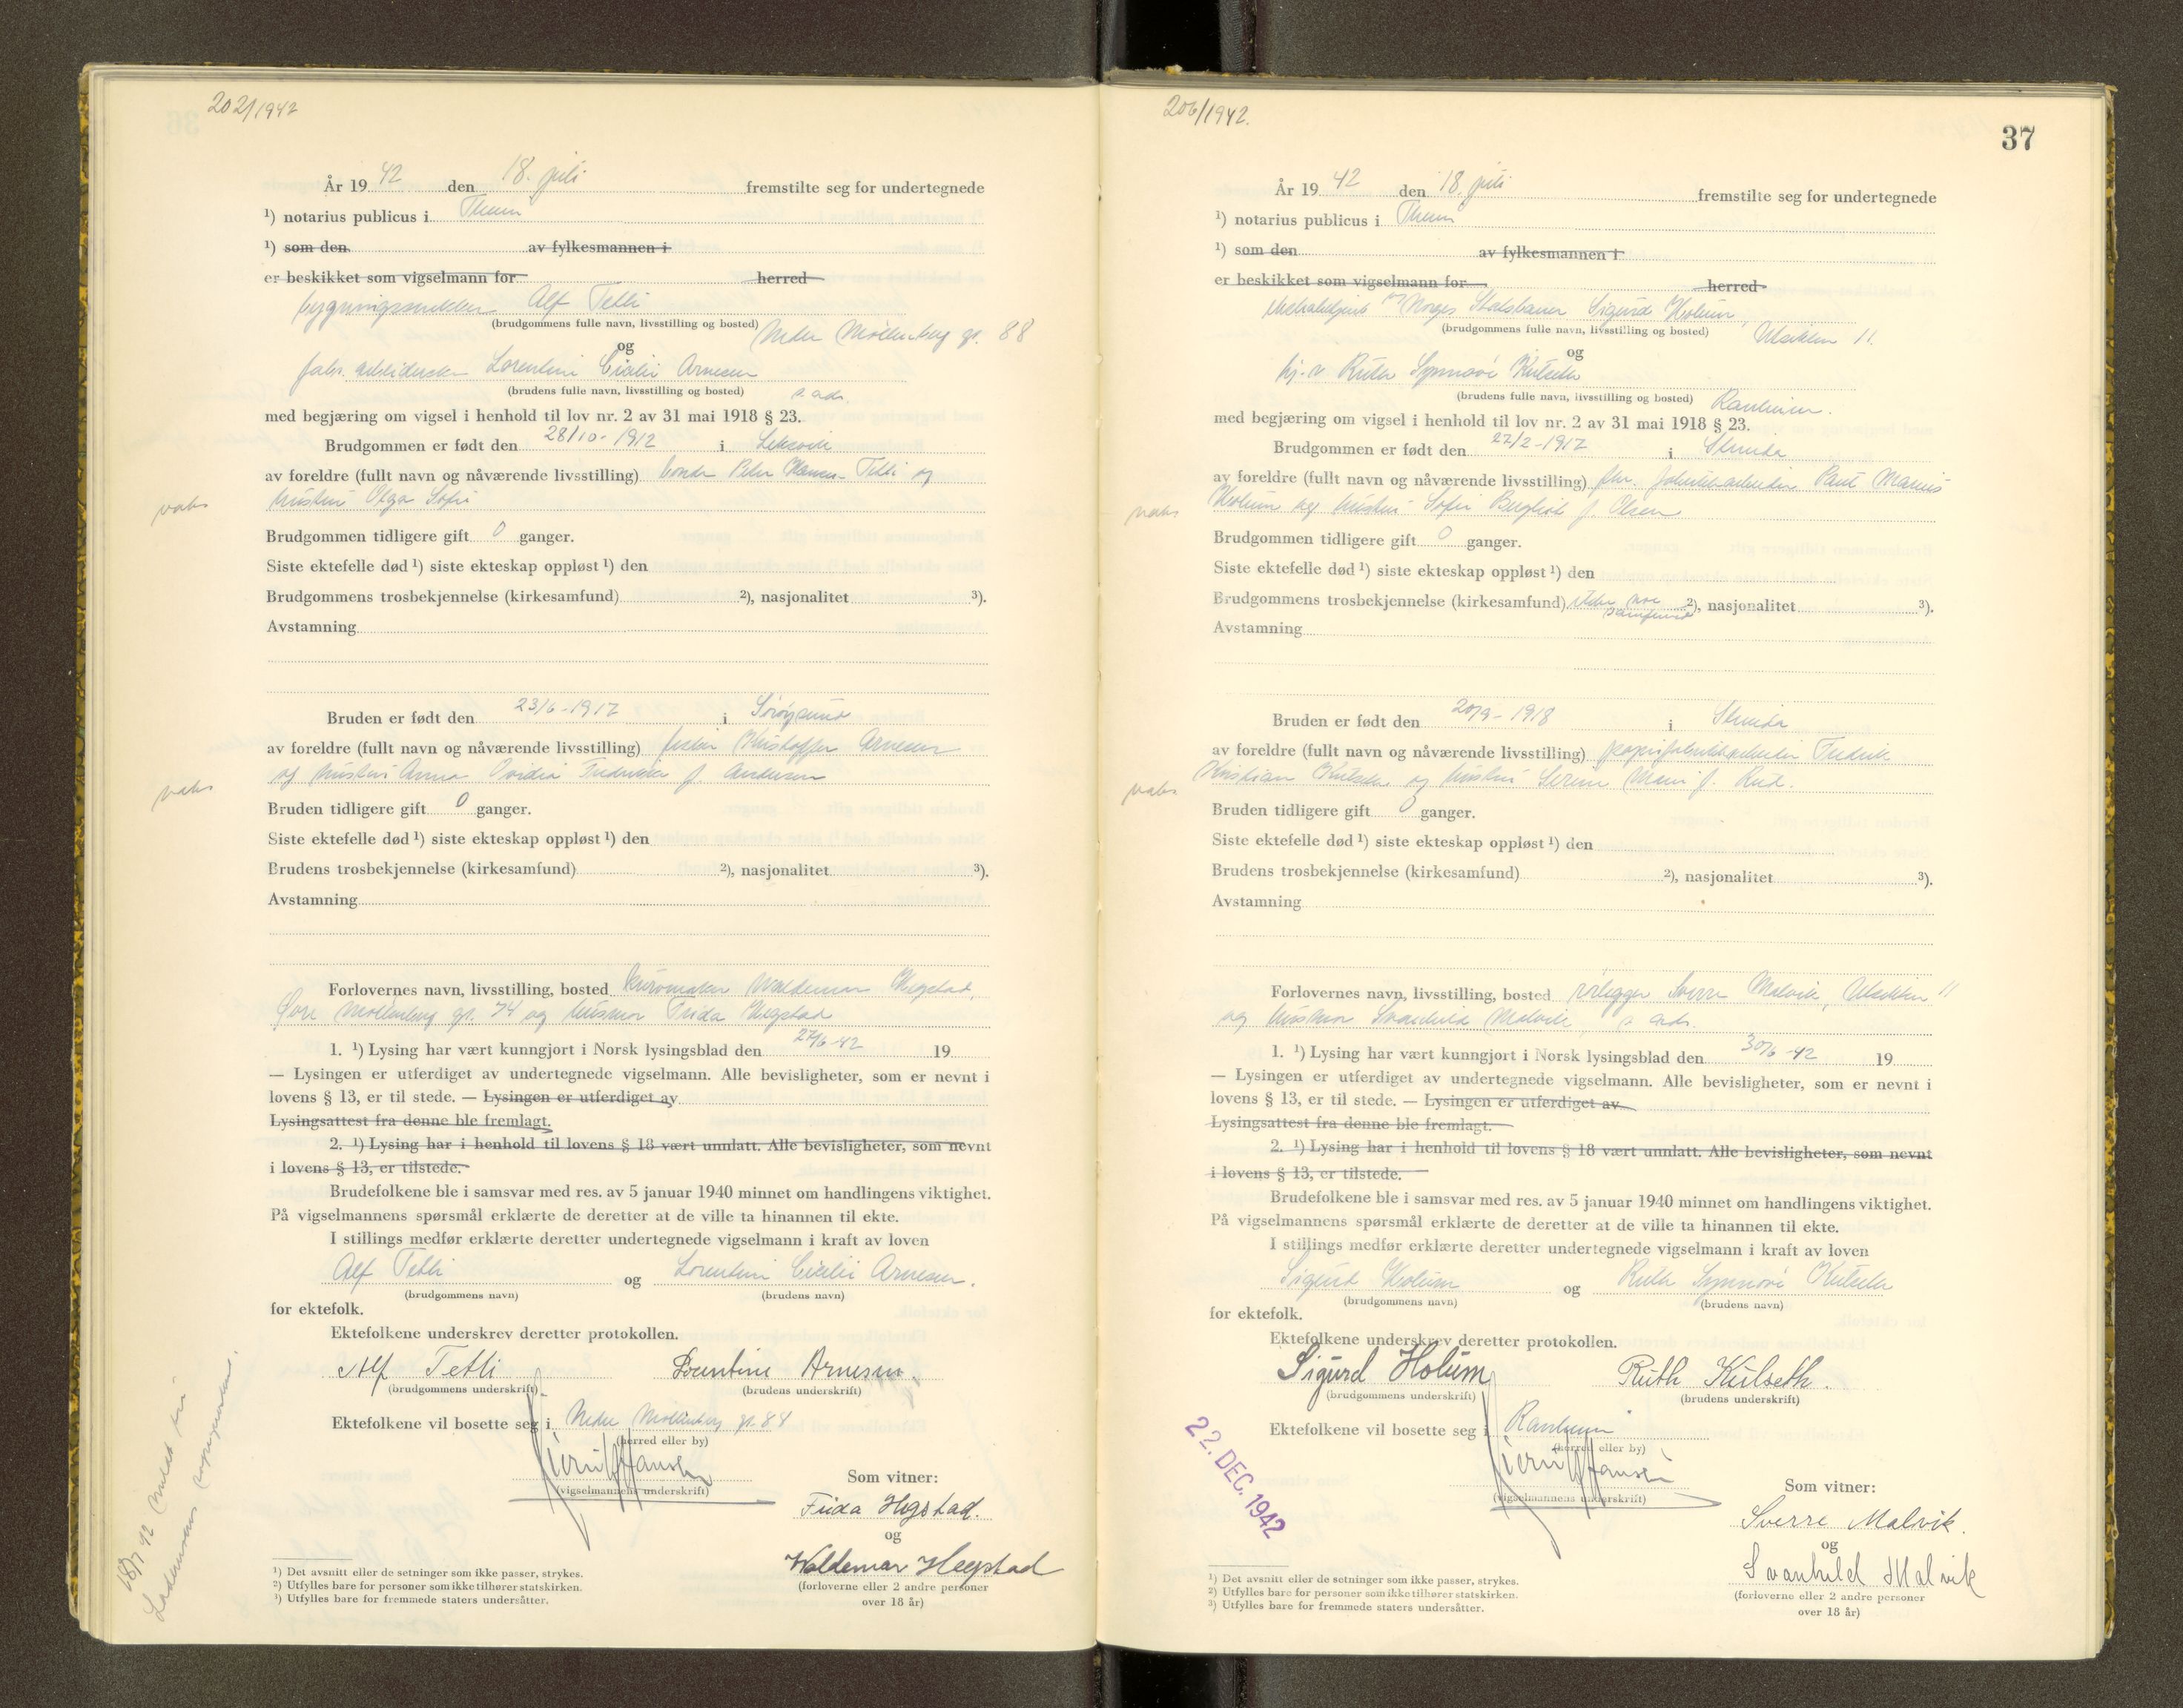 202/1942
År 19 42 den 18. juli fremstilte seg for undertegnede
¹) notarius publicus i Thrm
¹) som den av fylkesmannen i
er beskikket som vigselmann for herred
bygningssnekker Alf Tetli
(brudgommens fulle navn, livsstilling og bosted) Nedre Möllenberg gt. 88
og
fabr. arbeiderske Lorentine Cicilie Arnesen
(brudens fulle navn, livsstilling og bosted) s. ads.
med begjæring om vigsel i henhold til lov nr. 2 av 31 mai 1918 § 23.
Brudgommen er født den 28/10-1912 i Leksvik
av foreldre (fullt navn og nåværende livsstilling) bonde Peter Hansen Tetli og
vaks
hustru Olga Sofie
Brudgommen tidligere gift 0 ganger.
Siste ektefelle død ¹) siste ekteskap oppløst ¹) den
Brudgommens trosbekjennelse (kirkesamfund) ²), nasjonalitet ³).
Avstamning
Bruden er født den 23/6-1917 i Söröysund
av foreldre (fullt navn og nåværende livsstilling) fisker Kristoffer Arnesen
og hustru Anna Ovidia Fredrikke f. Andersen
vaks
Bruden tidligere gift 0 ganger.
Siste ektefelle død ¹) siste ekteskap oppløst ¹) den
Brudens trosbekjennelse (kirkesamfund) ²), nasjonalitet ³).
Avstamning
Forlovernes navn, livsstilling, bosted kurvmaker Waldemar Hegstad,
Øvre Möllenberg gt. 74 og husmor Frida Hegstad
1. ¹) Lysing har vært kunngjort i Norsk lysingsblad den 27/6-42 19
— Lysingen er utferdiget av undertegnede vigselmann. Alle bevisligheter, som er nevnt i
lovens § 13, er til stede. — Lysingen er utferdiget av
Lysingsattest fra denne ble fremlagt.
2. ¹) Lysing har i henhold til lovens § 18 vært unnlatt. Alle bevisligheter, som nevnt
i lovens § 13, er tilstede.
Brudefolkene ble i samsvar med res. av 5 januar 1940 minnet om handlingens viktighet.
På vigselmannens spørsmål erklærte de deretter at de ville ta hinannen til ekte.
I stillings medfør erklærte deretter undertegnede vigselmann i kraft av loven
Alf Tetli og Lorentine Cicilie Arnesen.
(brudgommens navn) (brudens navn)
for ektefolk.
Ektefolkene underskrev deretter protokollen.
Alf Tetli Lorentine Arnesen.
(brudgommens underskrift) (brudens underskrift)
Ektefolkene vil bosette seg i Nedre Möllenberg gt. 84
(herred eller by)
(vigselmannens underskrift)
Som vitner:
Frida Hegstad.
og
Waldemar Hegstad
(forloverne eller 2 andre personer
over 18 år)
18/7 42 meldt til
¹) Det avsnitt eller de setninger som ikke passer, strykes.
²) Utfylles bare for personer som ikke tilhører statskirken.
¹) Utfylles bare for fremmede staters undersåtter.
206/1942.
37
År 19 42 den 18. juli fremstilte seg for undertegnede
¹) notarius publicus i Thrm
¹) som den av fylkesmannen i
er beskikket som vigselmann for herred
Norges Statsbaner Sigurd Holum,
(brudgommens fulle navn, livsstilling og bosted) Utsikten 11.
og
hj. v. Ruth Synnöve Kulseth
(brudens fulle navn, livsstilling og bosted) Ranheim.
med begjæring om vigsel i henhold til lov nr. 2 av 31 mai 1918 § 23.
Brudgommen er født den 27/2-1917 i Strinda
av foreldre (fullt navn og nåværende livsstilling) fhv. fabrikkarbeider Paul Marius
vaks
Holum og hustru Sofie Bergliot f. Olsen
Brudgommen tidligere gift 0 ganger.
Siste ektefelle død ¹) siste ekteskap oppløst ¹) den
Brudgommens trosbekjennelse (kirkesamfund) uten noe samfund ²), nasjonalitet ³).
Avstamning
Bruden er født den 20/9-1918 i Strinda
av foreldre (fullt navn og nåværende livsstilling) papirfabrikkarbeider Fredrik
Kristian Kulseth og hustru Serine Marie f. Rud.
vaks
Bruden tidligere gift 0 ganger.
Siste ektefelle død ¹) siste ekteskap oppløst ¹) den
Brudens trosbekjennelse (kirkesamfund) ²), nasjonalitet ³).
Avstamning
Forlovernes navn, livsstilling, bosted rörlegger Sverre Malvik, Utsikten 11
og husmor Svanhild Malvik s. ads.
1. ¹) Lysing har vært kunngjort i Norsk lysingsblad den 30/6-42 19
— Lysingen er utferdiget av undertegnede vigselmann. Alle bevisligheter, som er nevnt i
lovens § 13, er til stede. — Lysingen er utferdiget av
Lysingsattest fra denne ble fremlagt.
2. ¹) Lysing har i henhold til lovens § 18 vært unnlatt. Alle bevisligheter, som nevnt
i lovens § 13, er tilstede.
Brudefolkene ble i samsvar med res. av 5 januar 1940 minnet om handlingens viktighet.
På vigselmannens spørsmål erklærte de deretter at de ville ta hinannen til ekte.
I stillings medfør erklærte deretter undertegnede vigselmann i kraft av loven
Sigurd Holum og Ruth Synnöve Kulseth
(brudgommens navn) (brudens navn)
for ektefolk.
Ektefolkene underskrev deretter protokollen.
Sigurd Holum Ruth Kulseth.
(brudgommens underskrift) (brudens underskrift)
Ektefolkene vil bosette seg i Ranheim
(herred eller by)
(vigselmannens underskrift)
22. DEC. 1942
Som vitner:
Sverre Malvik.
og
Svanhild Malvik
(forloverne eller 2 andre personer
over 18 år)
¹) Det avsnitt eller de setninger som ikke passer, strykes.
²) Utfylles bare for personer som ikke tilhører statskirken.
³) Utfylles bare for fremmede staters undersåtter.